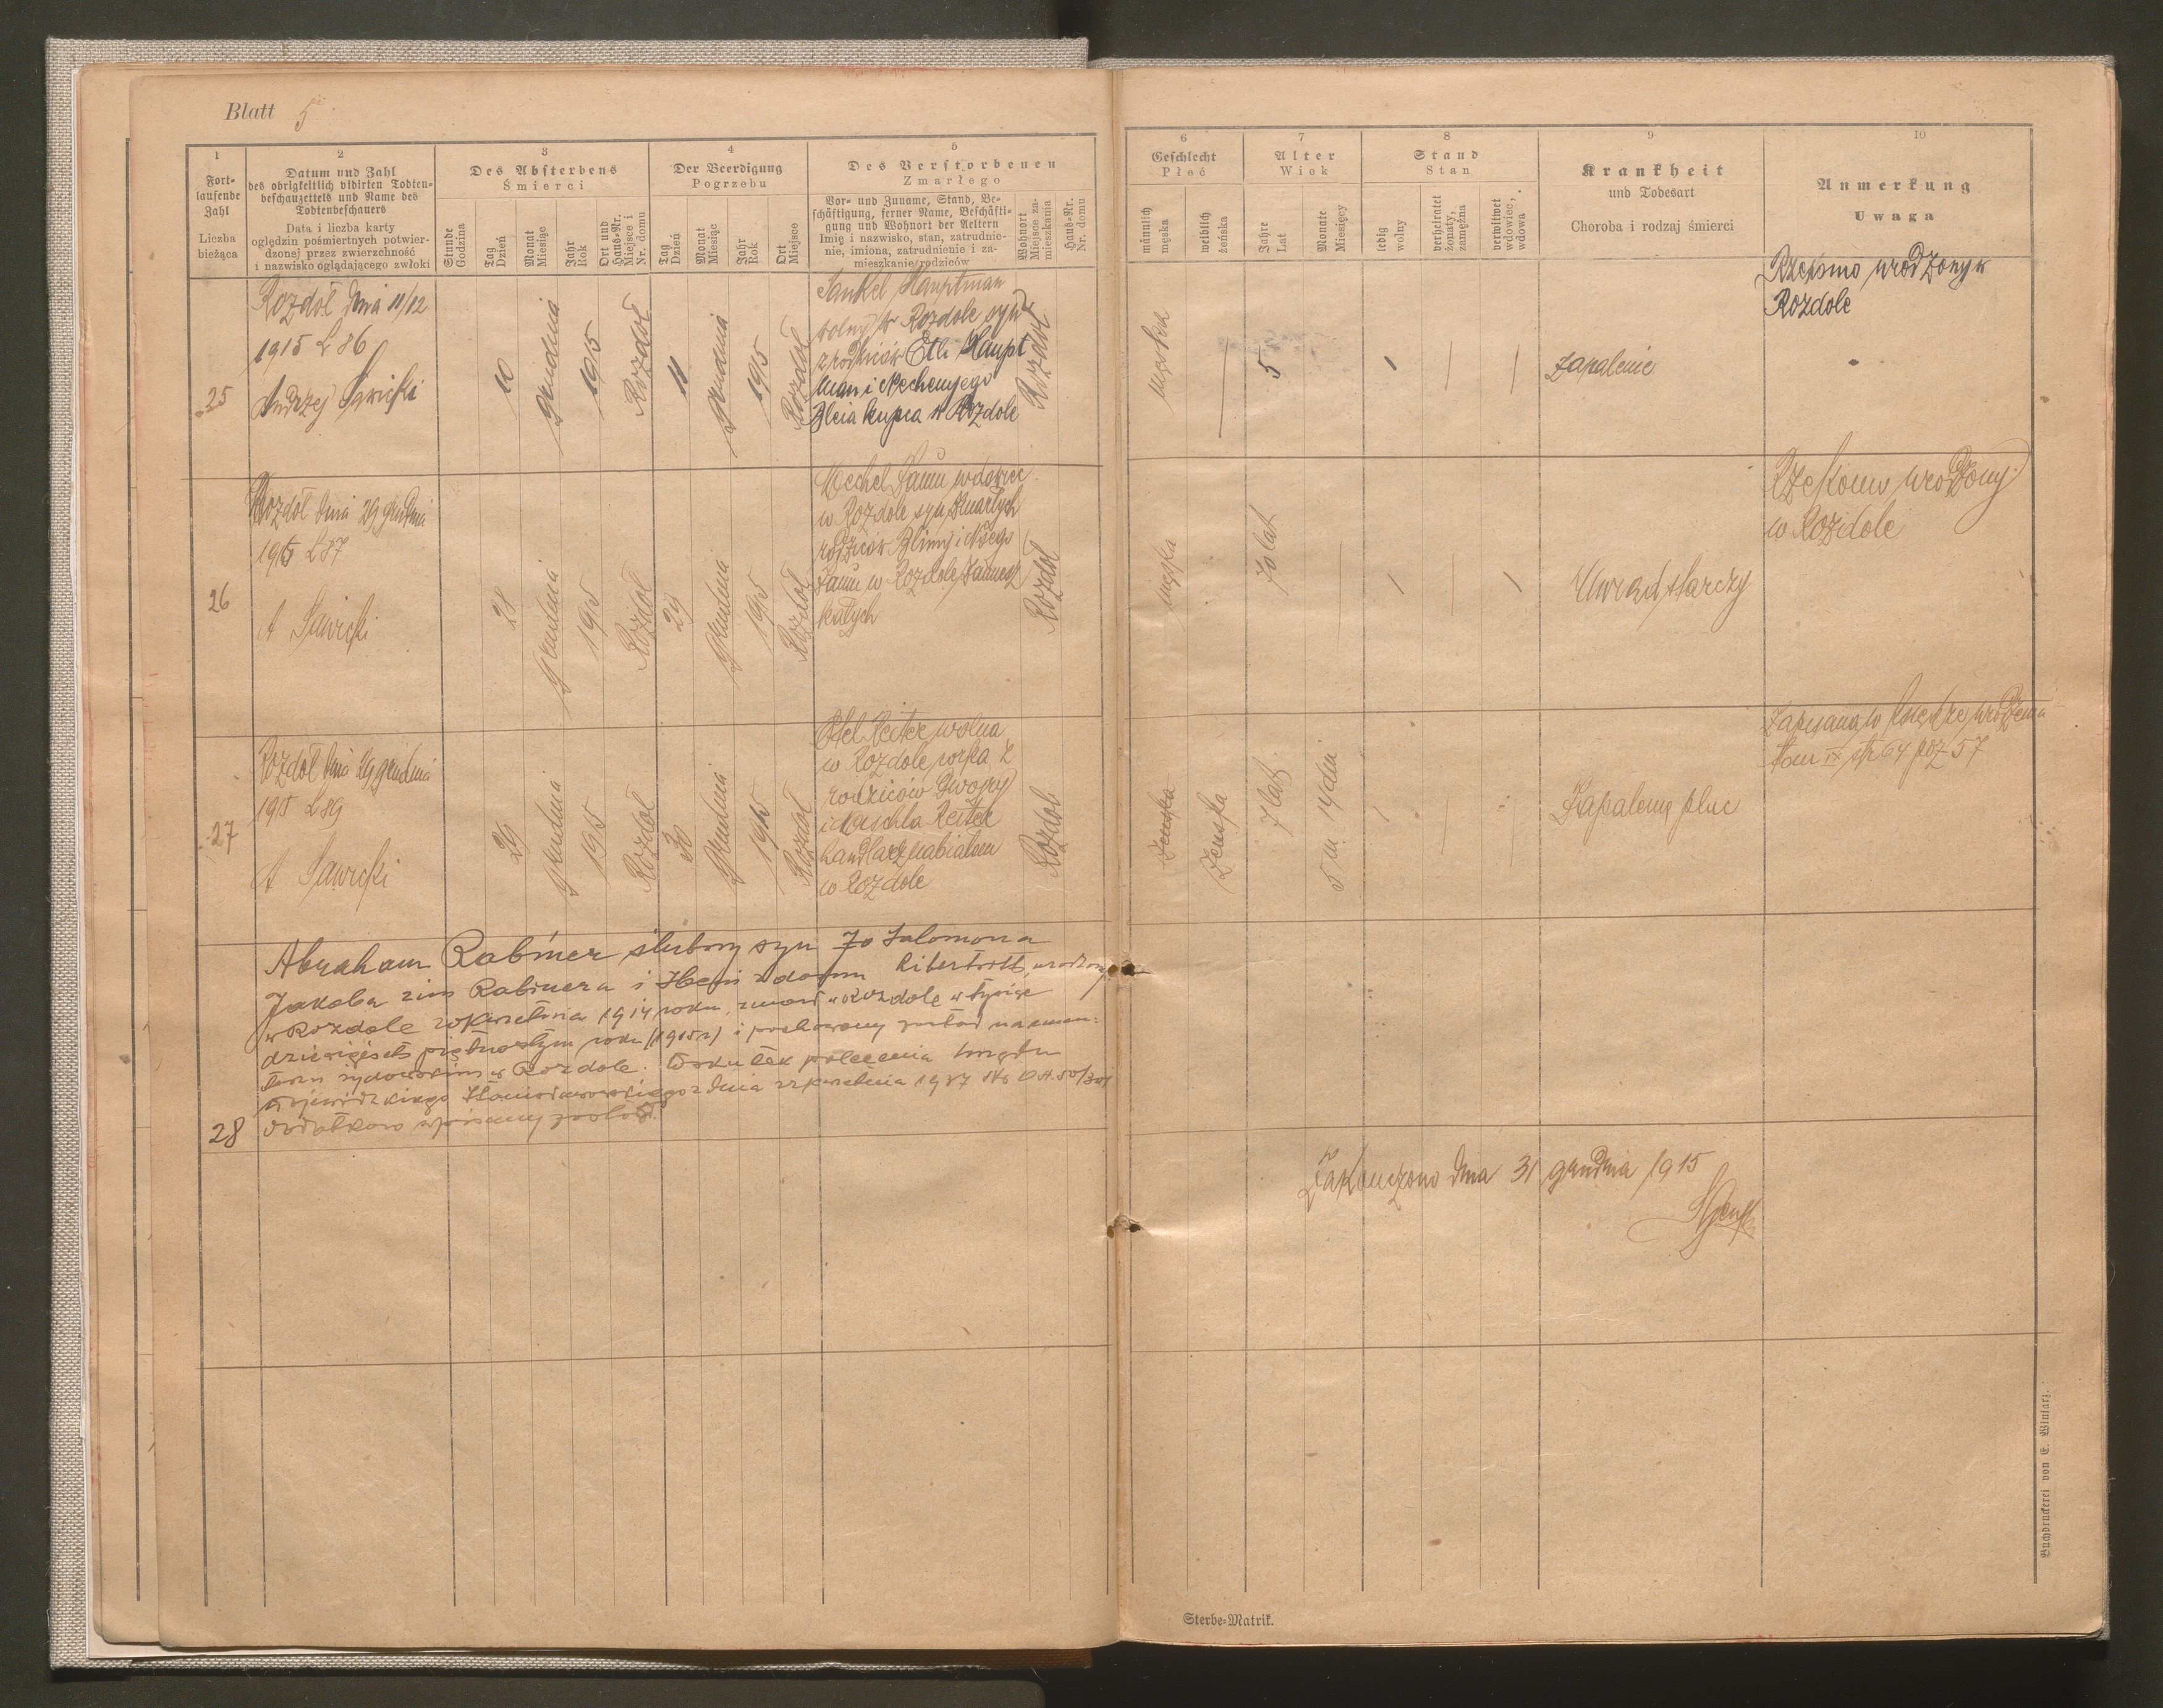 Blatt 5
1
Fort-
laufende
Zahl
Liczba
bieżąca
2
Datum und Zahl
des obrigkeitlich vidirten Todten-
beschauzettels und Name des
Todtenbeschauers
Data i liczba karty
oględzin pośmiertnych potwier-
dzonej przez zwierzchność
i nazwisko oglądającego zwłoki
3
Des Absterbens
Śmierci
Stunde
Godzina
Tag
Dzień
Monat
Miesiąc
Jahr
Rok
Ort und
Haus-Nr.
Miejsce i
Nr. domu
4
Der Beerdigung
Pogrzebu
Tag
Dzień
Monat
Miesiąc
Jahr
Rok
Ort
Miejsce
5
Des Verstorbenen
Zmarłego
Vor- und Zuname, Stand, Be-
schäftigung, ferner Name, Beschäfti-
gung und Wohnort der Aeltern
Imię i nazwisko, stan, zatrudnie-
nie, imiona, zatrudnienie i za-
mieszkanie rodziców
Wohnort
Miejsce za-
mieszkania
Haus-Nr.
Nr. domu
6
Geschlecht
Płeć
männlich
męska
weiblich
żeńska
7
Alter
Wiek
Jahre
Lat
Monate
Miesięcy
8
Stand
Stan
ledig
wolny
verheiratet
żonaty,
zamężna
verwitwet
wdowiec,
wdowa
9
Krankheit
und Todesart
Choroba i rodzaj śmierci
10
Anmerkung
Uwaga
25
Rozdół dnia 11/12
1915 L 86
Andrzej Sawicki
10
Grudnia
1915
Rozdół
11
Grudnia
1915
Rozdół
Jankel Hauptman
wolny w Rozdole syn
z rodziców Etli Haupt
man i Nechemjego
kupca w Rozdole
Rozdół
męska
5
Zapalenie
urodzony w
Rozdole
26
Rozdół dnia 29 grudnia
1915 L 87
A Sawicki
28
Grudnia
1915
Rozdół
29
Grudnia
1915
Rozdół
Mechel wdowiec
w Rozdole syn zmarłych
rodziców
w Rozdole zamiesz
kałych
Rozdół
męska
70 lat
Uwiąd starczy
Rzekomo urodzony
w Rozdole
27
Rozdół dnia 29 grudnia
1915 L 89
A Sawicki
29
Grudnia
1915
Rozdół
30
Grudnia
1915
Rozdół
Reiter wolna
w Rozdole córka z
rodziców Dwojry
i Herschla Reiter
handlarz nabiałem
w Rozdole
Rozdół
żenska
żenska
7 lat
5 m 14 dni
Zapalenie płuc
Zapisana w księdze urodzenia
tom IX str 64 poz 57
28
Abraham Rabiner ślubny syn Salomona
Jakóba Rabinera i z domu urodzony
w Rozdole kwietnia 1914 roku, zmarł w Rozdole w tysiąc
dziewięćset piętnastym roku (1915 r) i pochowany został na cmen-
tarzu żydowskim w Rozdole. Wskutek polecenia Urzędu
Wojewódzkiego Stanisławowskiego z dnia kwietnia 1937
dodatkowo wpisany został.
Zakończono dnia 31 grudnia 1915
Sterbe-Matrik.
Buchdruckerei von E. Winiarz.